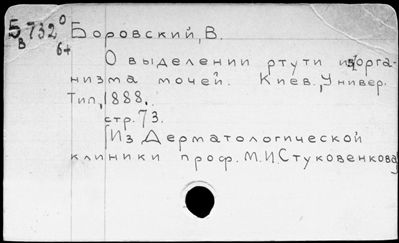 Б 732⁰ Боровский, В.
в 6+
О выделении ртути из орга-
низма мочей. Киев, Универ.
Тип, 1888.
стр. 73.
[Из Дерматологической
клиники проф. М.И.Стуковенкова]